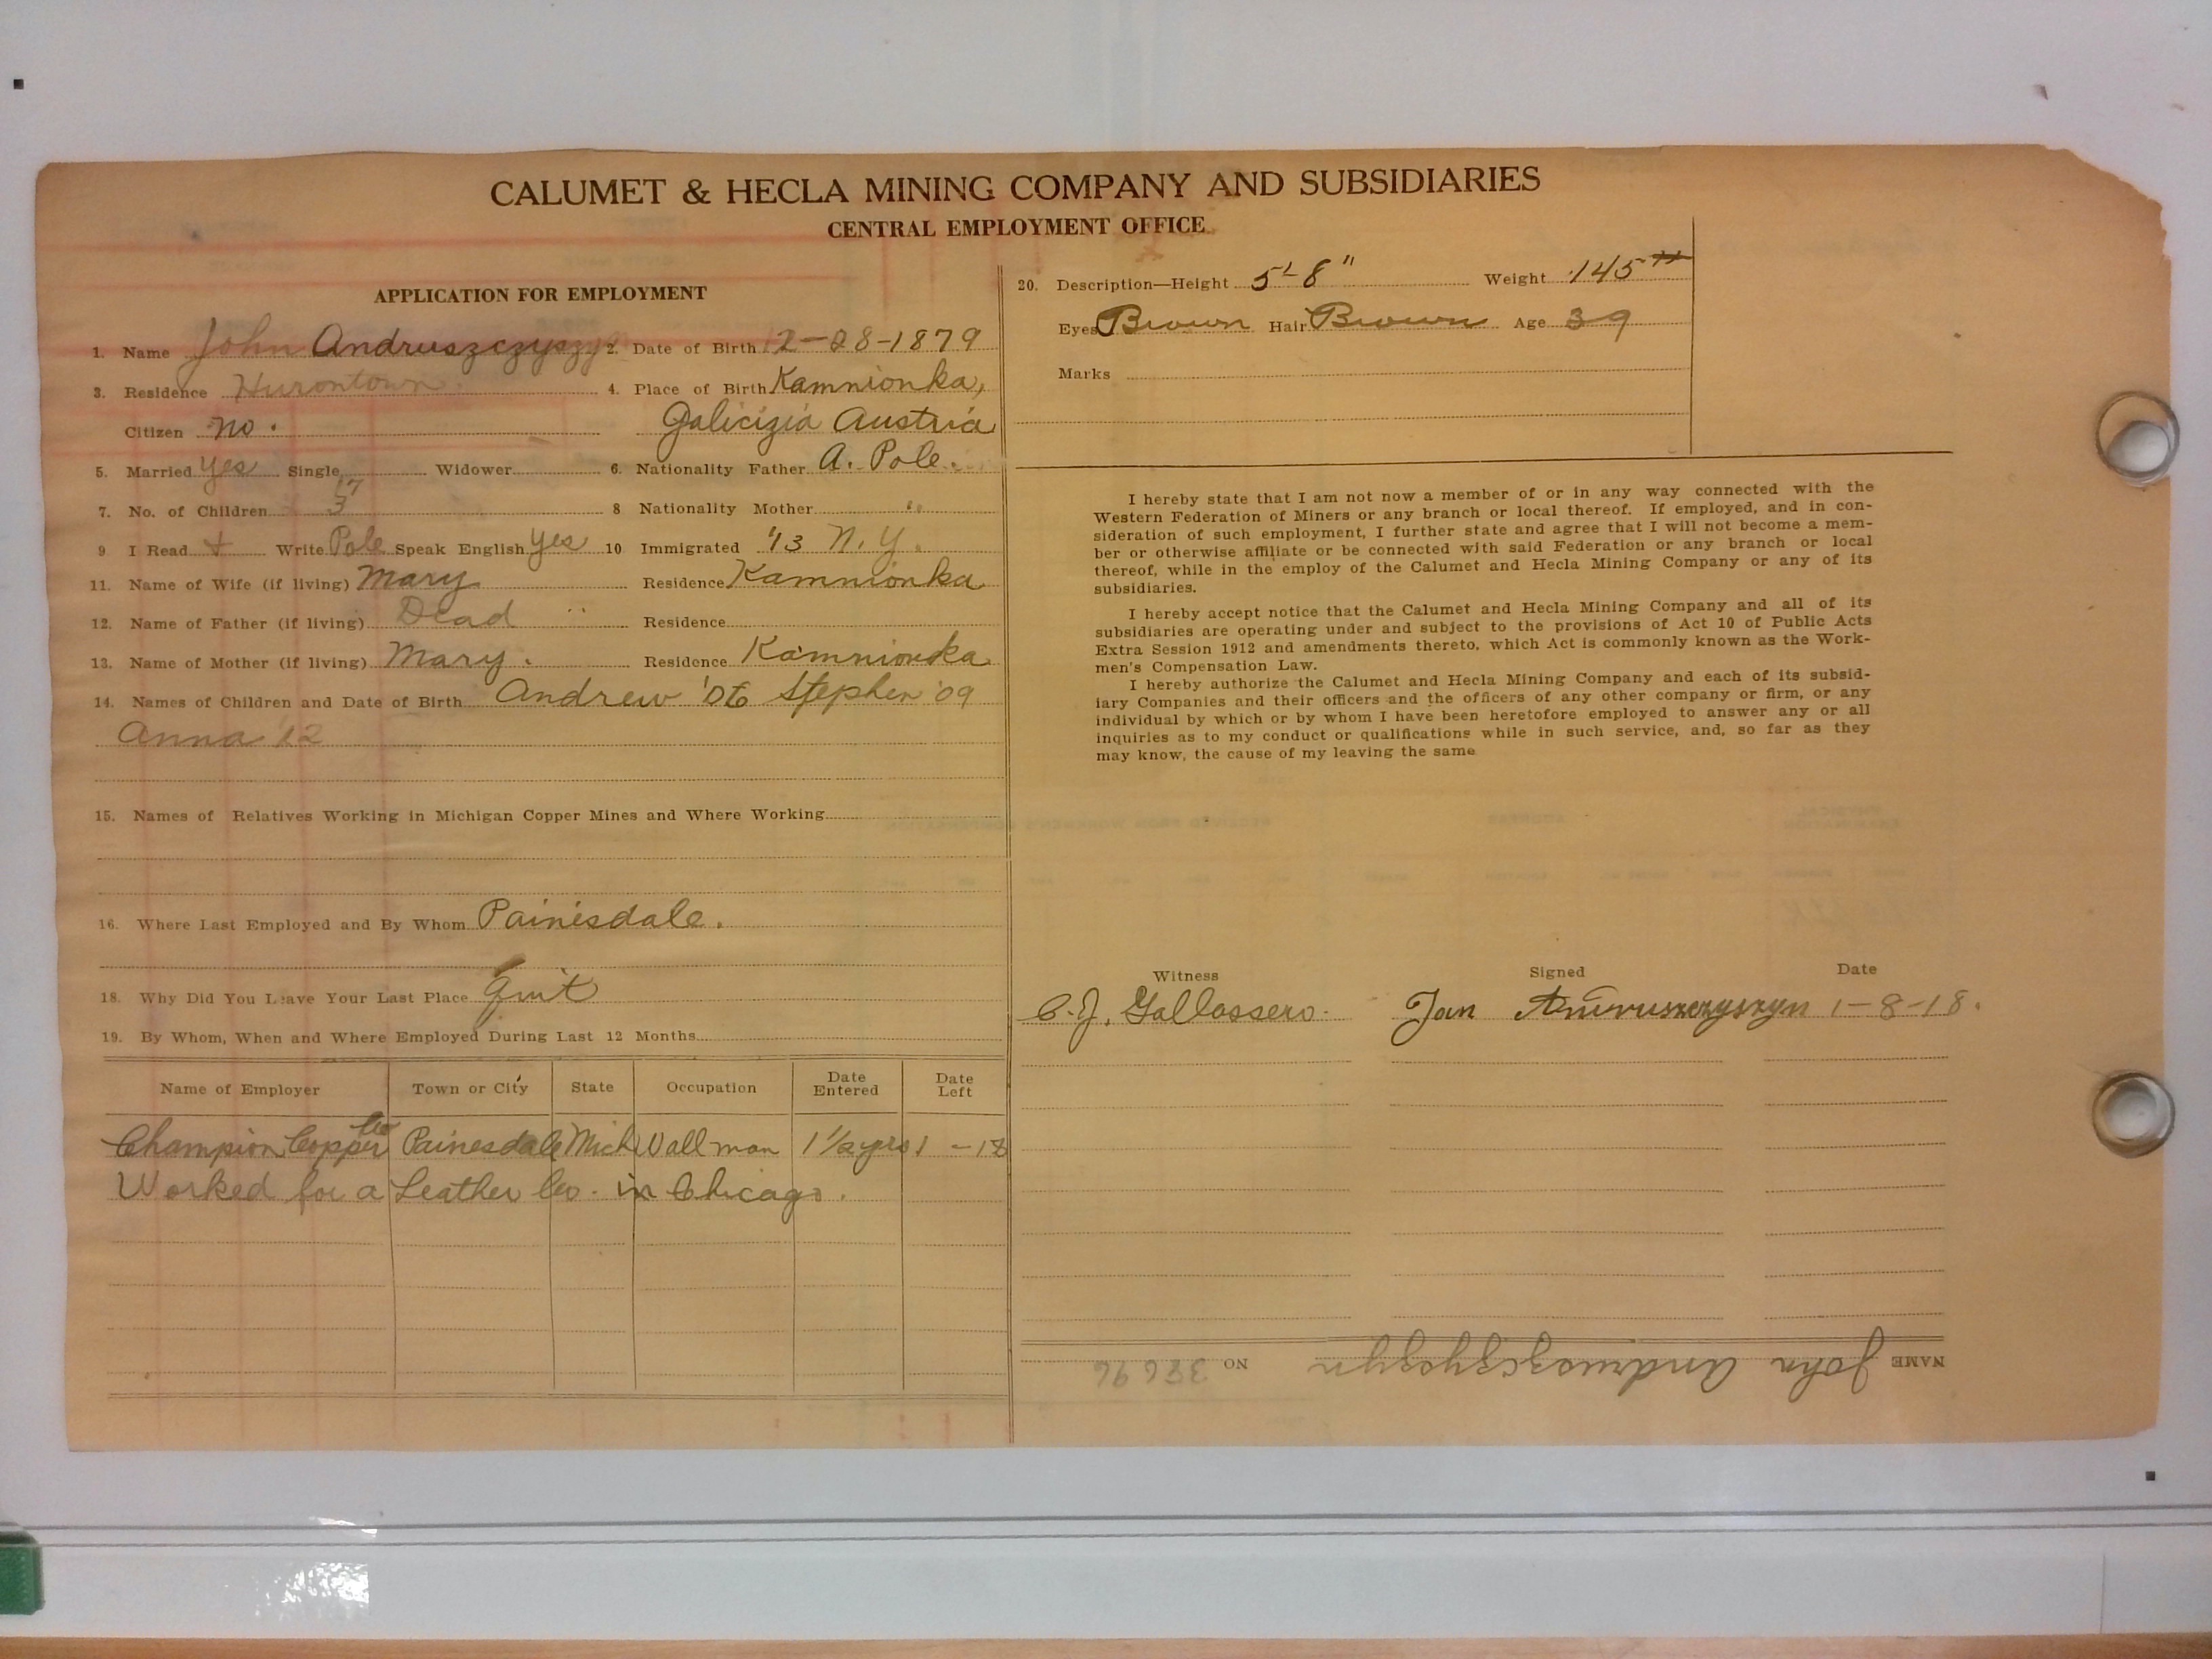 CALUMET & HECLA MINING COMPANY AND SUBSIDIARIES
CENTRAL EMPLOYMENT OFFICE
APPLICATION FOR EMPLOYMENT
1. Name John Andruszczyszyn 2. Date of Birth 12-28-1879
3. Residence Hurontown 4. Place of Birth Kamnionka,
Citizen no. Galicizia Austria
5. Married yes Single Widower 6. Nationality Father A. Pole.
7. No. of Children 3 8 Nationality Mother "
9 I Read + Write Pole Speak English yes 10 Immigrated '13 N.Y.
11. Name of Wife (if living) Mary Residence Kamnionka
12. Name of Father (if living) Dead Residence
13. Name of Mother (if living) Mary. Residence Kamnionka
14. Names of Children and Date of Birth Andrew '06 Stephen '09
Anna '12
15. Names of Relatives Working in Michigan Copper Mines and Where Working
16. Where Last Employed and By Whom Painesdale.
18. Why Did You Leave Your Last Place Quit
19. By Whom, When and Where Employed During Last 12 Months
Name of Employer Town or City State Occupation Date Entered Date Left
Champion Copper Co Painesdale Mich Wall man 1 1/2 yrs 1 - 18
Worked for a Leather Co. in Chicago.
20. Description—Height 5'-8" Weight 145
Eyes Brown Hair Brown Age 39
Marks
I hereby state that I am not now a member of or in any way connected with the
Western Federation of Miners or any branch or local thereof. If employed, and in con-
sideration of such employment, I further state and agree that I will not become a mem-
ber or otherwise affiliate or be connected with said Federation or any branch or local
thereof, while in the employ of the Calumet and Hecla Mining Company or any of its
subsidiaries.
I hereby accept notice that the Calumet and Hecla Mining Company and all of its
subsidiaries are operating under and subject to the provisions of Act 10 of Public Acts
Extra Session 1912 and amendments thereto, which Act is commonly known as the Work-
men's Compensation Law.
I hereby authorize the Calumet and Hecla Mining Company and each of its subsid-
iary Companies and their officers and the officers of any other company or firm, or any
individual by which or by whom I have been heretofore employed to answer any or all
inquiries as to my conduct or qualifications while in such service, and, so far as they
may know, the cause of my leaving the same
Witness Signed Date
C.J. Gallassero. Jan Andruszczyszyn 1-8-18.
NAME John Andruszczyszyn NO